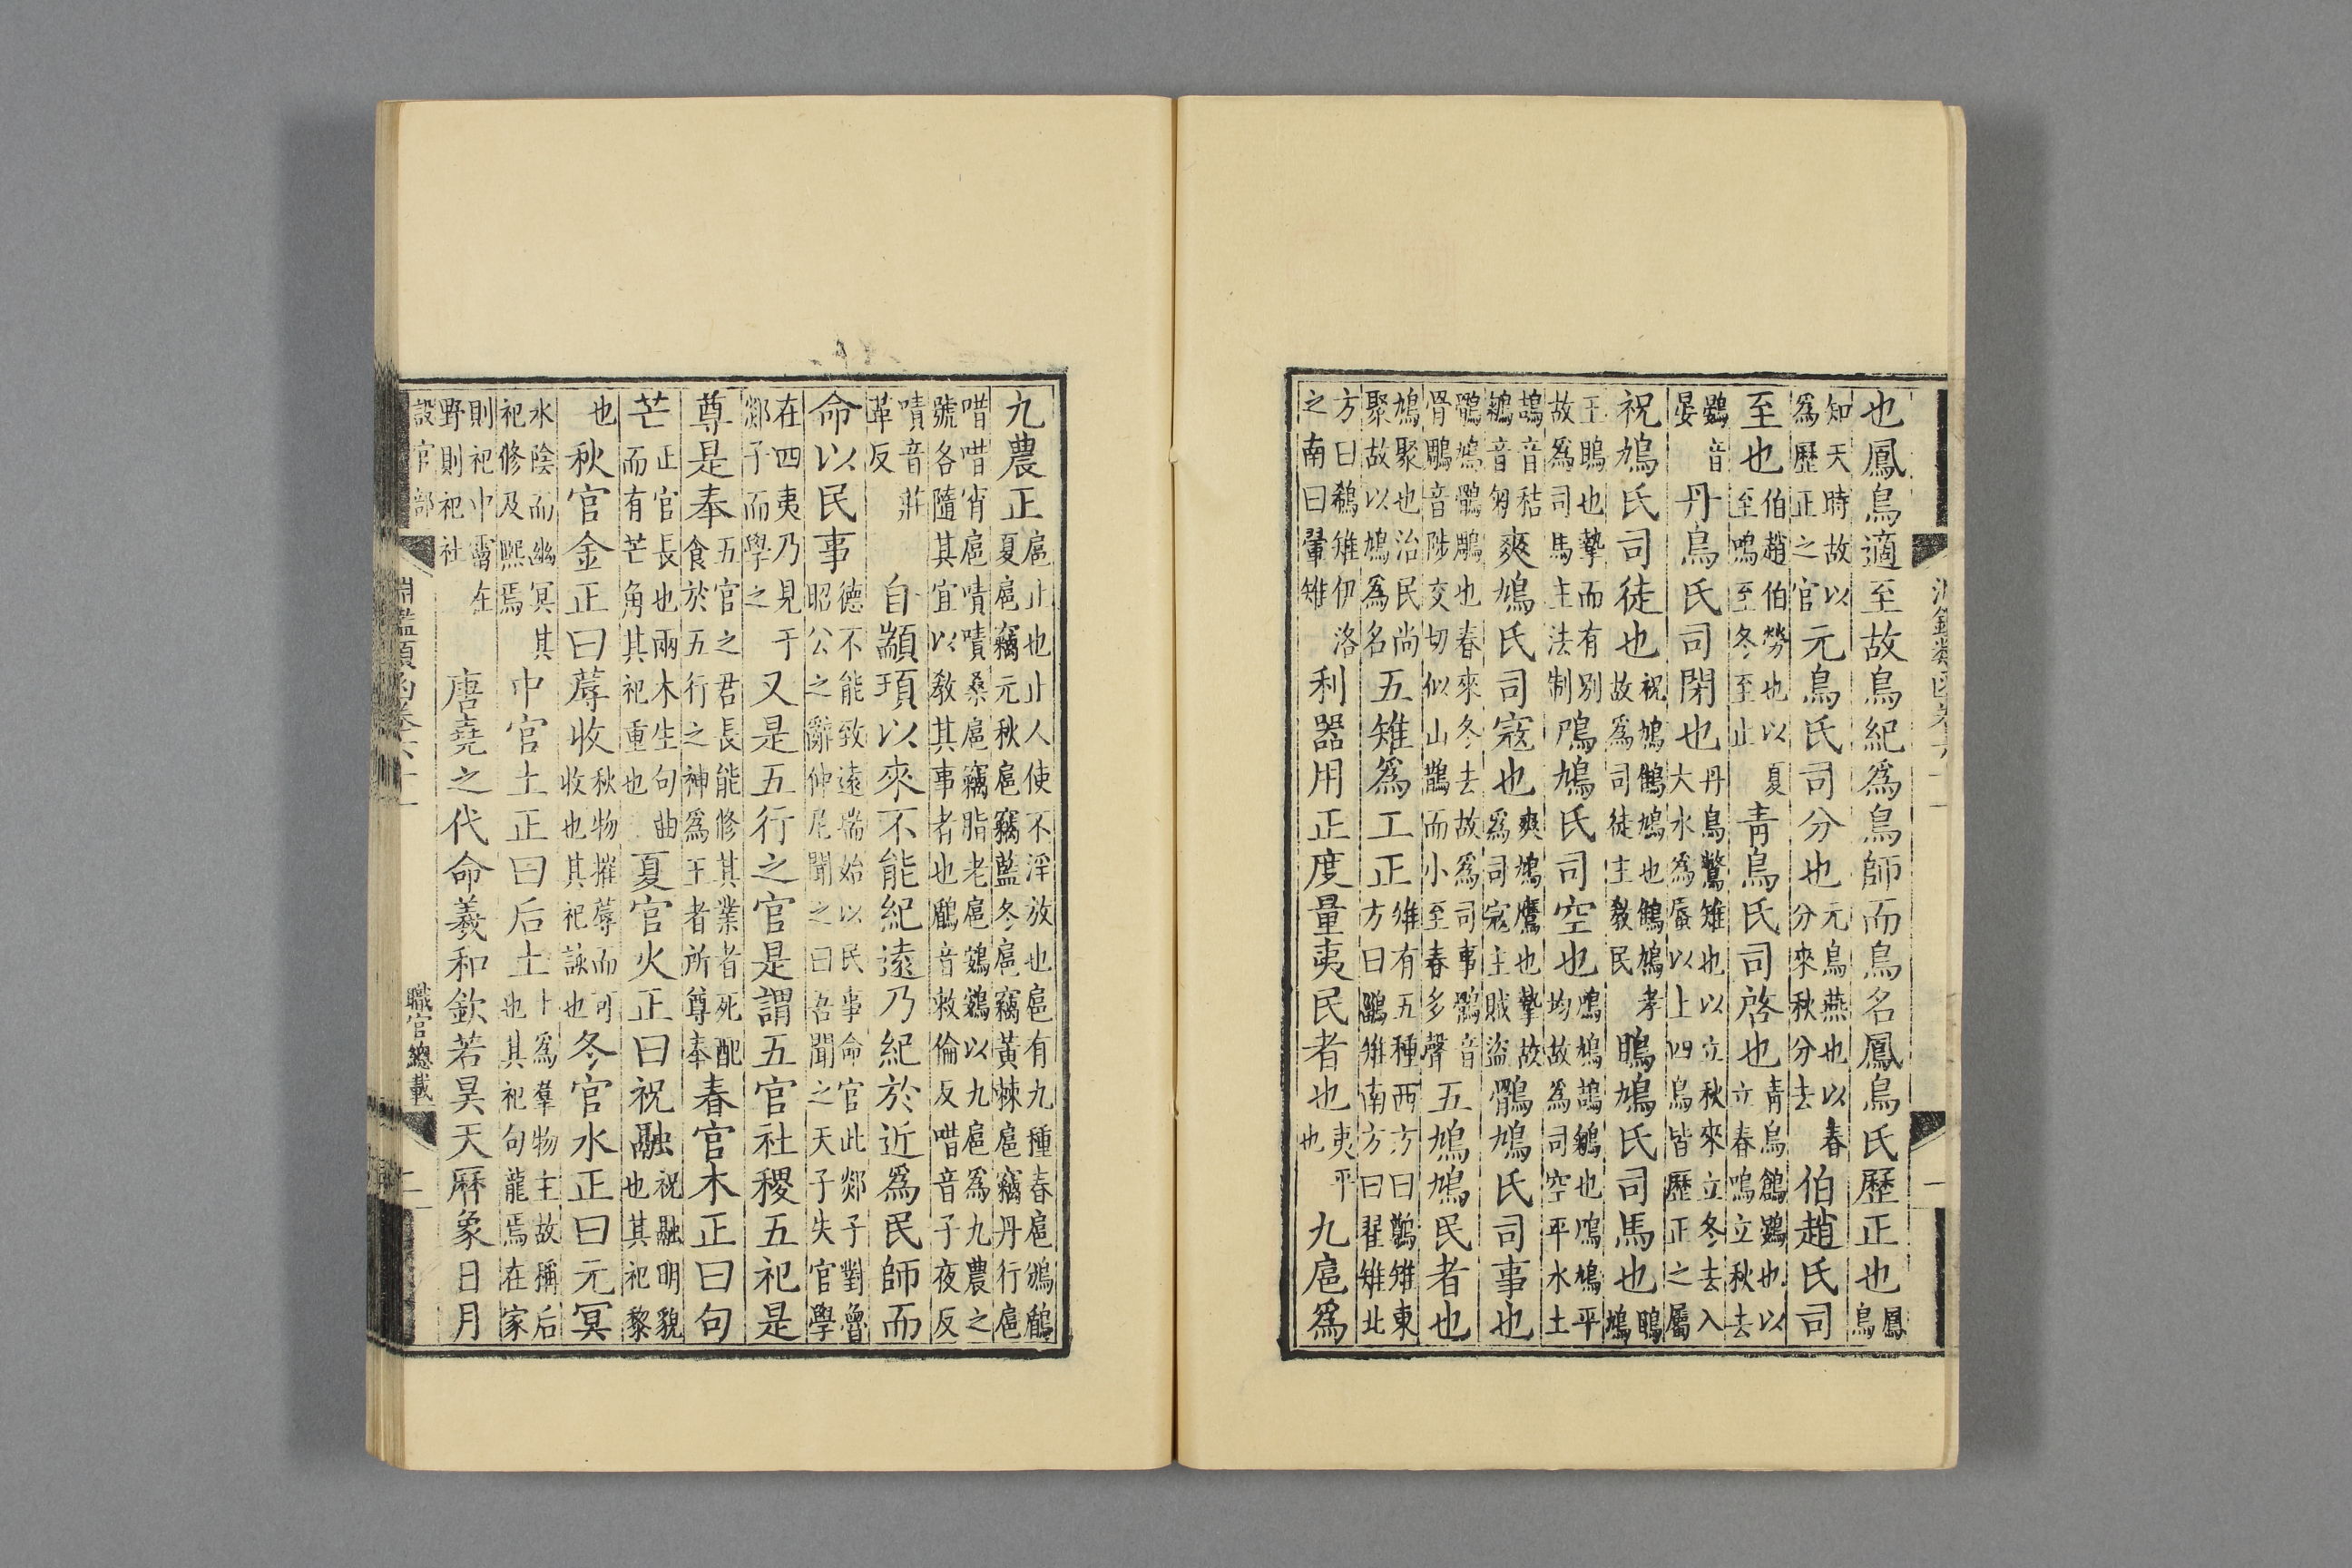 也鳳鳥適至故鳥紀爲鳥師而鳥名鳳鳥氏歷正也鳳鳥
知天時故以爲歷正之官元鳥氏司分也元鳥燕也以春分來秋分去伯趙氏司
至也伯趙伯勞也以夏至鳴至冬至止青鳥氏司啓也青鳥鶬鷃也以立春鳴立秋去
鷃音晏丹鳥氏司閉也丹鳥鷩雉也以立秋來立冬去入大水爲蜃以上四鳥皆歷正之屬
祝鳩氏司徒也祝鳩鷦鳩也鷦鳩孝故爲司徒主教民鴡鳩氏司馬也鴡鳩
王鴡也摯而有別故爲司馬主法制鳲鳩氏司空也鳲鳩鴶鵴也鳲鳩平均故爲司空平水土
鴶音秸鵴音匊爽鳩氏司寇也爽鳩鷹也摯故爲司寇主賊盜鶻鳩氏司事也
鶻鳩鶻鵰也春來冬去故爲司事鶻音骨鵰音陟交切似山鵲而小至春多聲五鳩鳩民者也
鳩聚也治民尚聚故以鳩爲名五雉爲工正雉有五種西方曰鷷雉東方曰鶅雉南方曰翟雉北
方曰鵗雉伊洛之南曰翬雉利器用正度量夷民者也夷平也九扈爲
九農正扈止也止人使不淫放也扈有九種春扈鳻鶞夏扈竊元秋扈竊藍冬扈竊黃棘扈竊丹行扈
唶唶宵扈嘖嘖桑扈竊脂老扈鷃鷃以九扈爲九農之號各隨其宜以教其事者也鶞音敕倫反唶音子夜反
嘖音莊革反自顓頊以來不能紀遠乃紀於近爲民師而
命以民事德不能致遠瑞始以民事命官此郯子對魯昭公之辭仲尼聞之曰吾聞之天子失官學
在四夷乃見于郯子而學之又是五行之官是謂五官社稷五祀是
尊是奉五官之君長能修其業者死配食於五行之神爲王者所尊奉春官木正曰句
芒正官長也兩木生句曲而有芒角其祀重也夏官火正曰祝融祝融明貌也其祀黎
也秋官金正曰蓐收秋物摧蓐而可收也其祀該也冬官水正曰元冥
水陰而幽冥其祀修及熙焉中官土正曰后土土爲羣物主故稱后也其祀句龍焉在家
則祀中霤在野則祀社唐堯之代命羲和欽若昊天厤象日月
設官部 淵鑑類函卷六十一 職官總載 二